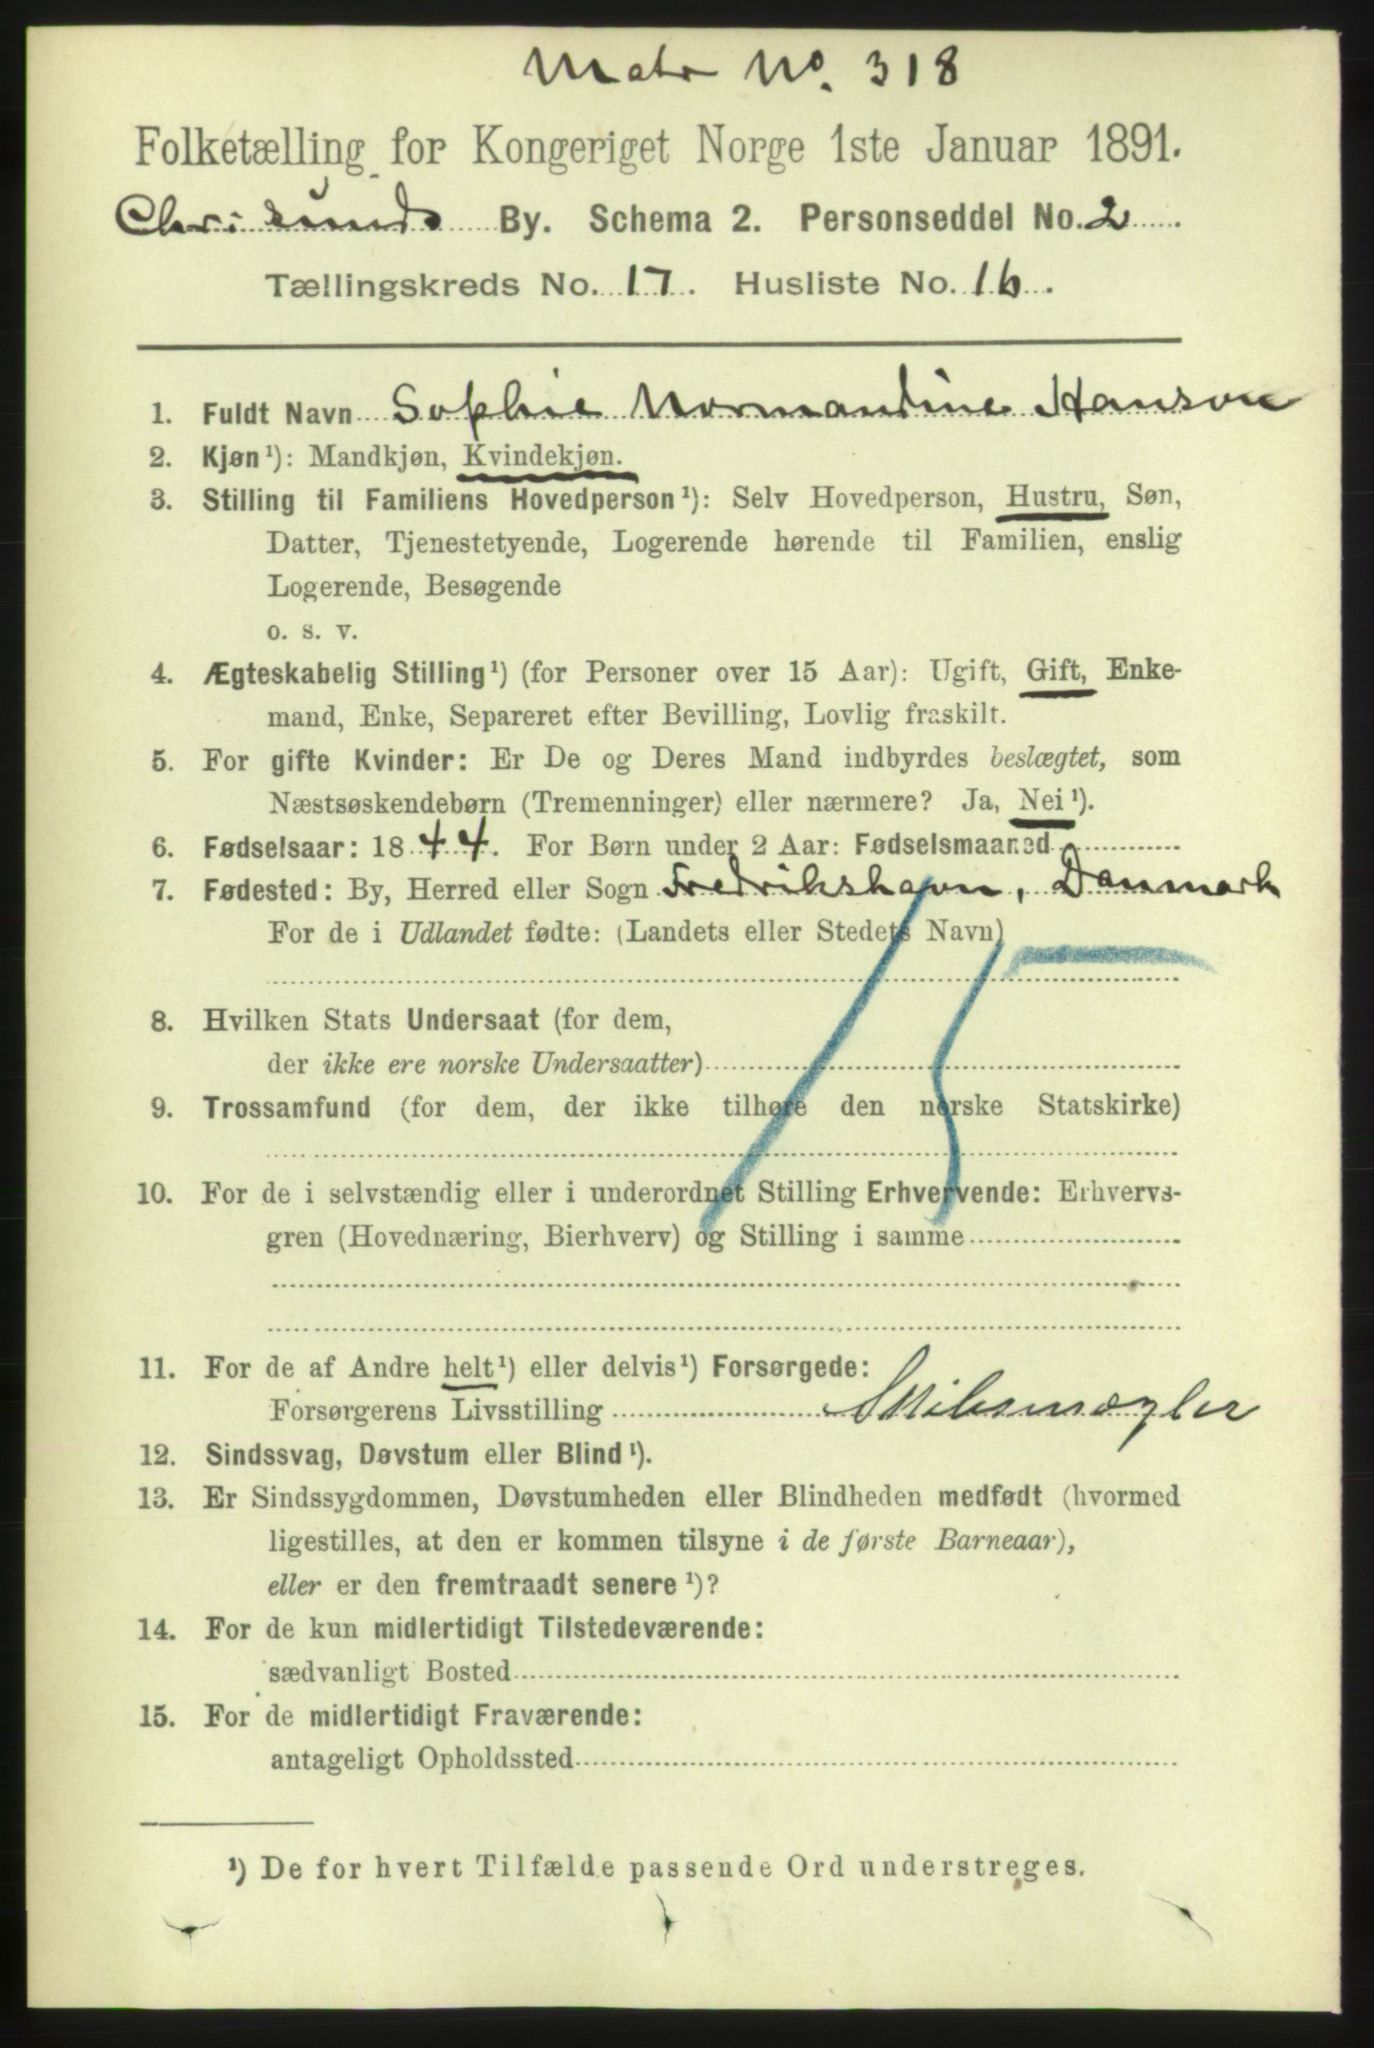 Matr No. 318
Folketælling for Kongeriget Norge 1ste Januar 1891.
Chr.sunds By. Schema 2. Personseddel No. 2
Tællingskreds No. 17. Husliste No. 16.
1. Fuldt Navn Sophie Normandine Hanson
2. Kjøn¹): Mandkjøn, Kvindekjøn.
3. Stilling til Familiens Hovedperson¹): Selv Hovedperson, Hustru, Søn,
Datter, Tjenestetyende, Logerende hørende til Familien, enslig
Logerende, Besøgende
o. s. v.
4. Ægteskabelig Stilling¹) (for Personer over 15 Aar): Ugift, Gift, Enke-
mand, Enke, Separeret efter Bevilling, Lovlig fraskilt.
5. For gifte Kvinder: Er De og Deres Mand indbyrdes beslægtet, som
Næstsøskendebørn (Tremenninger) eller nærmere? Ja, Nei¹).
6. Fødselsaar: 1844. For Børn under 2 Aar: Fødselsmaaned
7. Fødested: By, Herred eller Sogn Fredrikshavn, Danmark
For de i Udlandet fødte: (Landets eller Stedets Navn)
15
8. Hvilken Stats Undersaat (for dem,
der ikke ere norske Undersaatter)
9. Trossamfund (for dem, der ikke tilhøre den norske Statskirke)
10. For de i selvstændig eller i underordnet Stilling Erhvervende: Erhvervs-
gren (Hovednæring, Bierhverv) og Stilling i samme
11. For de af Andre helt¹) eller delvis¹) Forsørgede:
Forsørgerens Livsstilling Skibsmægler
12. Sindssvag, Døvstum eller Blind¹).
13. Er Sindssygdommen, Døvstumheden eller Blindheden medfødt (hvormed
ligestilles, at den er kommen tilsyne i de første Barneaar),
eller er den fremtraadt senere¹)?
14. For de kun midlertidigt Tilstedeværende:
sædvanligt Bosted
15. For de midlertidigt Fraværende:
antageligt Opholdssted
¹) De for hvert Tilfælde passende Ord understreges.